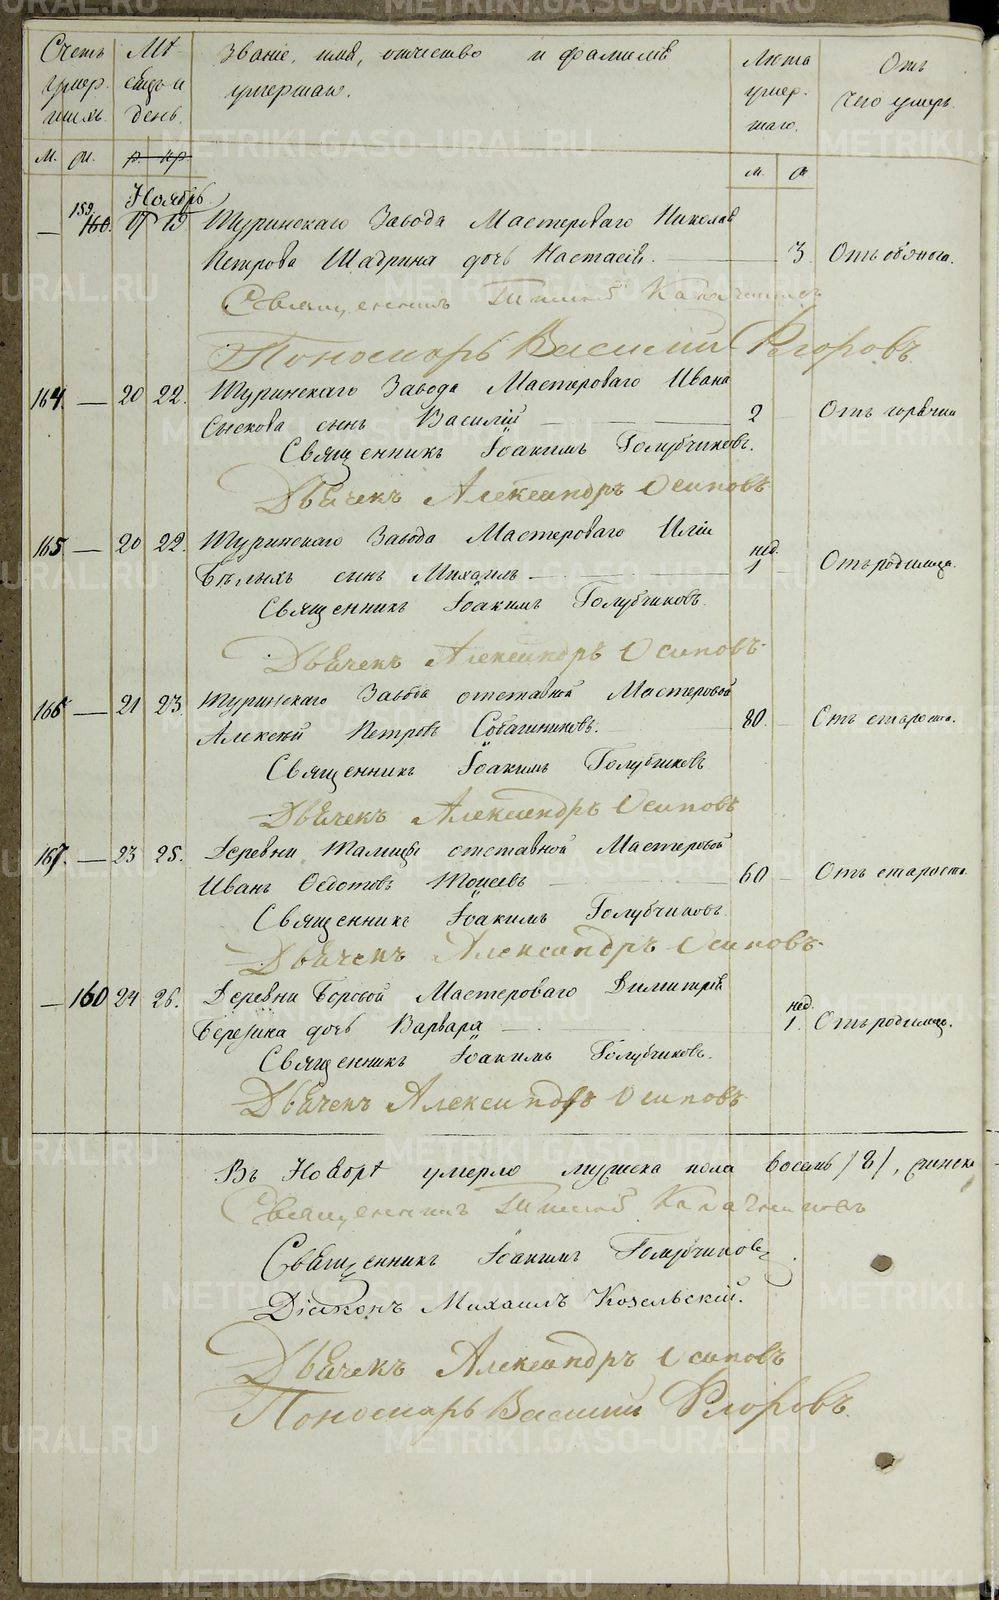 Счетъ умер шихъ.
Мѣ сяцъ и день.
Званіе, имя, отчество и фамилія умершаго.
Лѣта умер. шаго.
Отъ чего умеръ.
м. ж. р. кр м. ж
Ноябрь.
159
— 160. 17 19 Туринскаго Завода Мастероваго Николая
Петрова Шадрина дочь Настасія. — 3. Отъ объѵноса.
Священникъ Тимофей Калачниковъ
Пономарь Василій Флоровъ.
164. — 20 22. Туринскаго Завода Мастероваго Ивана
Сыскова сынъ Василій — 2 Отъ горячки
Священникъ Іоакимъ Голубчиковъ.
Дьячекъ Александръ Осиповъ
165 — 20 22. Туринскаго Завода Мастероваго Иліи
Бѣлыхъ сынъ Михаилъ — нед. 1 Отъ родимца.
Священникъ Іоакимъ Голубчиковъ.
Дьячекъ Александръ Осиповъ
166 — 21 23. Туринскаго Завода отставной Мастеровой
Алексѣй Петровъ Собашниковъ. 80. — Отъ старости.
Священникъ Іоакимъ Голубчиковъ
Дьячекъ Александръ Осиповъ
167. — 23 25. Деревни Талицы отставной Мастеровой
Иванъ Ѳедотовъ Моисеевъ — 60 — Отъ старости.
Священникъ Іоакимъ Голубчиковъ.
Дьячекъ Александръ Осиповъ.
— 160 24 26. Деревни Боровой Мастероваго Димитрія
Березина дочь Варвара — . нед. 1. Отъ родимца.
Священникъ Іоакимъ Голубчиковъ.
Дьячекъ Александръ Осиповъ
Въ Ноябрѣ умерло мужеска пола восемь /8/, женска
Священникъ Тимофей Калачниковъ
Священникъ Іоакимъ Голубчиковъ.
Діаконъ Михаилъ Козельскій.
Дьячекъ Александръ Осиповъ
Пономарь Василій Флоровъ.
METRIKI.GASO-URAL.RU